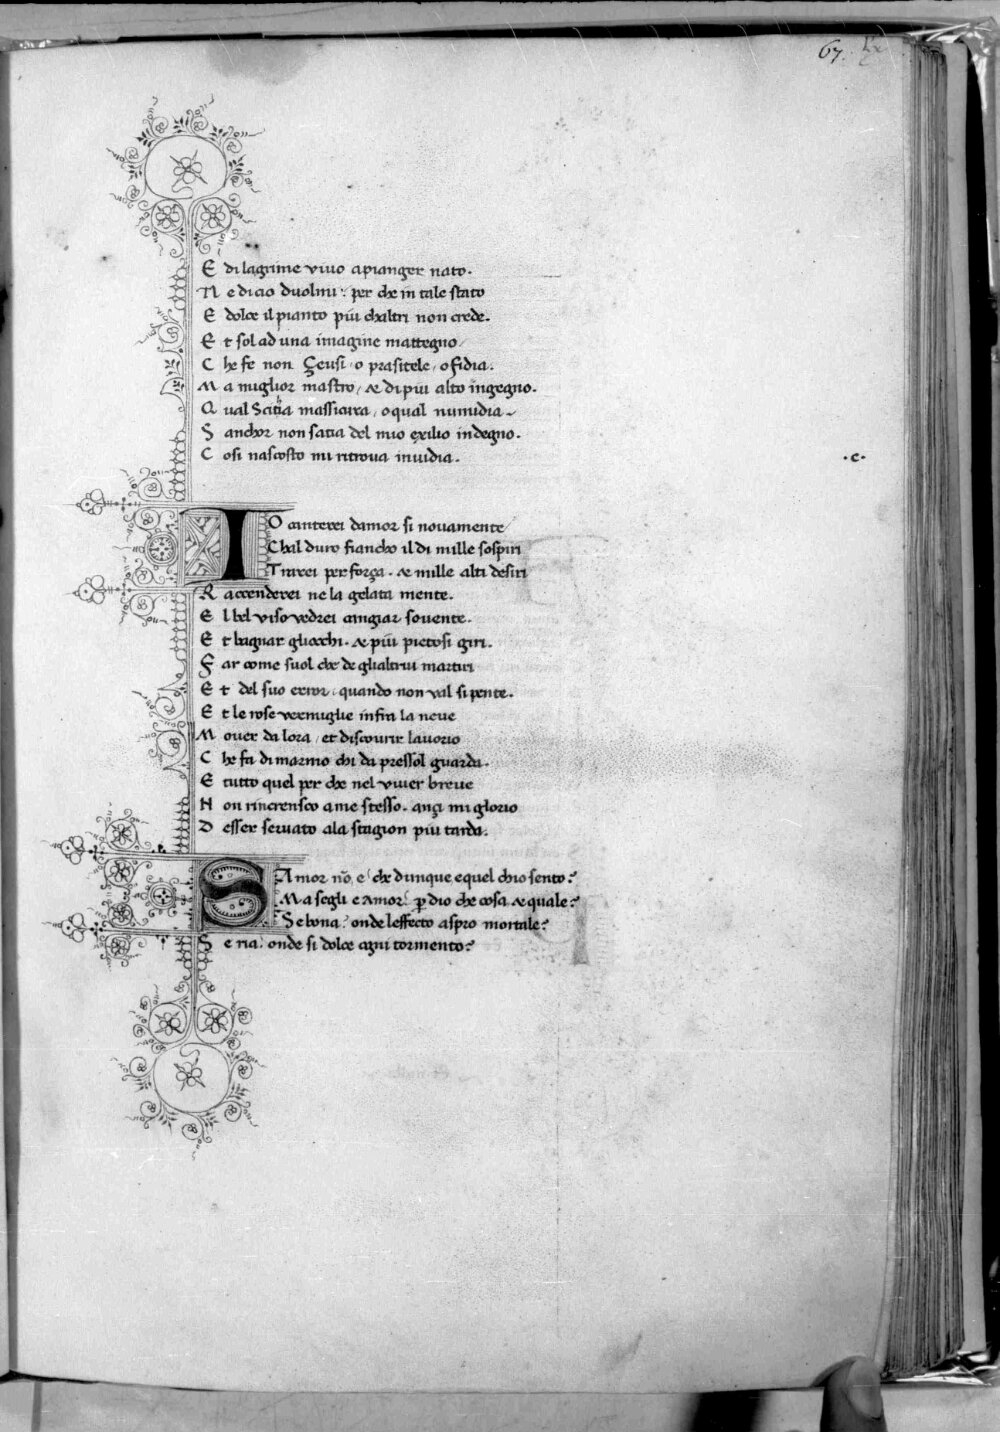 67.
E di lagrime vivo a pianger nato.
N e di cio duolmi: per che in tale stato
E dolce il pianto piu chaltri non crede.
E t sol ad una imagine mattegno
C he fe non Çeusi o prasitele, o fidia.
M a miglior mastro, & di piu alto ingegno.
Q ual Scithia massicura, o qual numidia
S anchor non satia del mio exilio indegno.
C osi nascosto mi ritrova invidia.
.c.
IO canterei damor si novamente
Chal duro fiancho il di mille sospiri
Trarei per força. & mille alti desiri
R accenderei ne la gelata mente.
E l bel viso vedrei cangiar sovente.
E t bagnar gliocchi. & piu pietosi giri.
F ar come suol che de glialtrui martiri
E t del suo error, quando non val si pente.
E t le rose vermiglie infra la neve
M over da lora, et discourir lavorio
C he fa di marmo chi da pressol guarda.
E tutto quel per che nel viver breve
N on rincrensco a me stesso. ançi mi glorio
D esser servato ala stagion piu tarda.
SAmor nō e che dunque e quel chio sento?
Ma segli e Amor: p dio che cosa & quale?
Se bona? onde leffecto aspro mortale?
S e ria: onde si dolce ogni tormento?